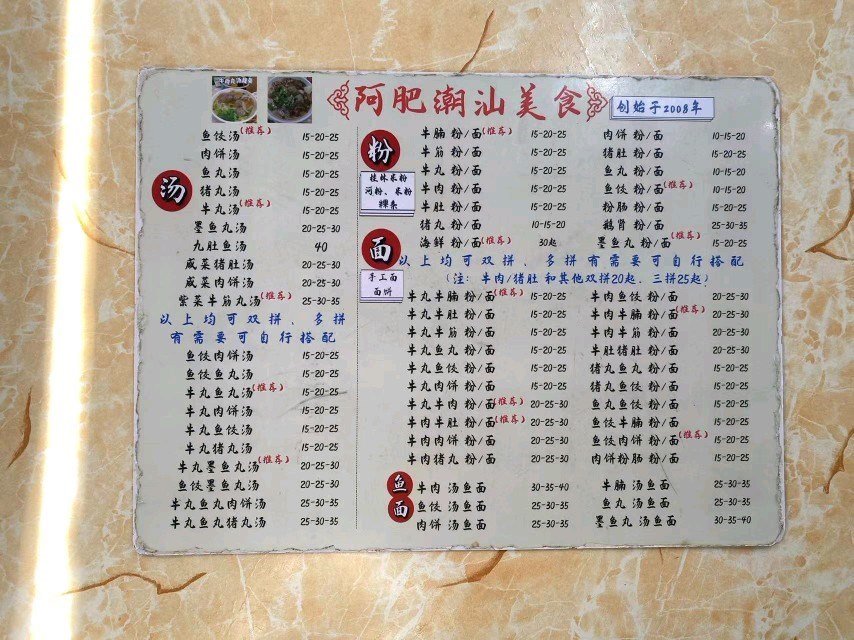 阿肥潮汕美食
创始于2008年
汤
鱼饺汤(推荐) 15-20-25
肉饼汤 15-20-25
鱼丸汤 15-20-25
猪丸汤 15-20-25
牛丸汤(推荐) 15-20-25
墨鱼丸汤 20-25-30
九肚鱼汤 40
咸菜猪肚汤 20-25-30
咸菜肉饼汤 20-25-30
紫菜牛筋丸汤(推荐) 25-30-35
以上均可双拼、多拼
有需要可自行搭配
鱼饺肉饼汤 15-20-25
鱼饺鱼丸汤 15-20-25
牛丸鱼丸汤(推荐) 15-20-25
牛丸肉饼汤 15-20-25
牛丸鱼饺汤 15-20-25
牛丸猪丸汤 15-20-25
牛丸墨鱼丸汤(推荐) 20-25-30
鱼饺墨鱼丸汤 20-25-30
牛丸鱼丸肉饼汤 25-30-35
牛丸鱼丸猪丸汤 25-30-35
粉
桂林米粉
河粉、米粉
粿条
面
手工面
面饼
牛腩 粉/面(推荐) 15-20-25
牛筋 粉/面 15-20-25
牛丸 粉/面 15-20-25
牛肉 粉/面 15-20-25
牛肚 粉/面 15-20-25
猪丸 粉/面 10-15-20
海鲜 粉/面(推荐) 30起
肉饼 粉/面 10-15-20
猪肚 粉/面 15-20-25
鱼丸 粉/面 10-15-20
鱼饺 粉/面(推荐) 10-15-20
粉肠 粉/面 15-20-25
鹅肾 粉/面 25-30-35
墨鱼丸 粉/面(推荐) 15-20-25
以上均可双拼、多拼有需要可自行搭配
(注: 牛肉/猪肚 和其他双拼20起、三拼25起)
牛丸牛腩 粉/面(推荐) 15-20-25
牛丸牛肚 粉/面 15-20-25
牛丸牛筋 粉/面 15-20-25
牛丸鱼丸 粉/面 15-20-25
牛丸鱼饺 粉/面 15-20-25
牛丸肉饼 粉/面 15-20-25
牛丸牛肉 粉/面(推荐) 20-25-30
牛肉牛肚 粉/面(推荐) 20-25-30
牛肉肉饼 粉/面 20-25-30
牛肉猪丸 粉/面 20-25-30
牛肉鱼饺 粉/面 20-25-30
牛肉牛腩 粉/面(推荐) 20-25-30
牛肉牛筋 粉/面 20-25-30
牛肚猪肚 粉/面 20-25-30
猪丸鱼丸 粉/面 15-20-25
猪丸鱼饺 粉/面 15-20-25
鱼丸鱼饺 粉/面 15-20-25
鱼饺牛腩 粉/面 15-20-25
鱼饺肉饼 粉/面(推荐) 15-20-25
肉饼粉肠 粉/面 15-20-25
鱼面
牛肉 汤鱼面 30-35-40
鱼饺 汤鱼面 25-30-35
肉饼 汤鱼面 25-30-35
牛腩 汤鱼面 25-30-35
鱼丸 汤鱼面 25-30-35
墨鱼丸 汤鱼面 30-35-40